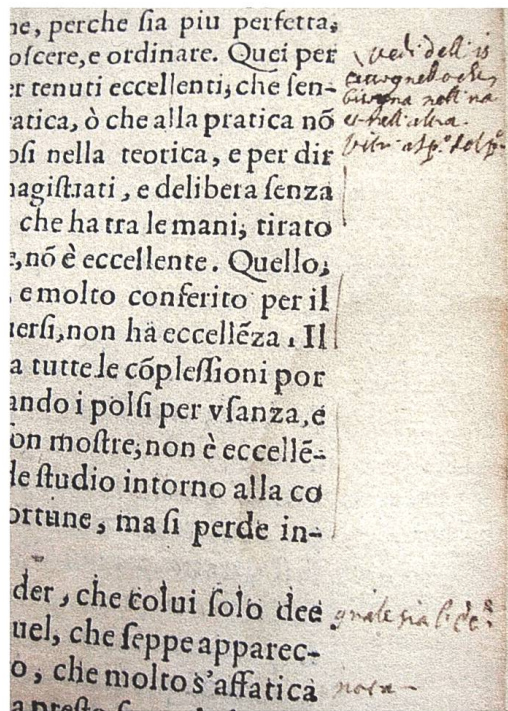 ne, perche ſia piu perfetta;
oſcere, e ordinare. Quei per
er tenuti eccellenti; che ſen-
ratica, ò che alla pratica nõ
oſi nella teorica, e per dir
nagiſtrati, e delibera ſenza
che ha tra le mani; tirato
e, nõ è eccellente. Quello;
, e molto conferito per il
uerſi, non ha eccellẽza. Il
a tutte le cõpleſſioni por
ando i polſi per vſanza, e
on moſtre; non è eccellẽ-
le ſtudio intorno alla co
ortune, ma ſi perde in-
der, che colui ſolo dee
uel, che ſeppe apparec-
o, che molto s'affatica
vedi dell
nell
nell altra
quale sia
nota